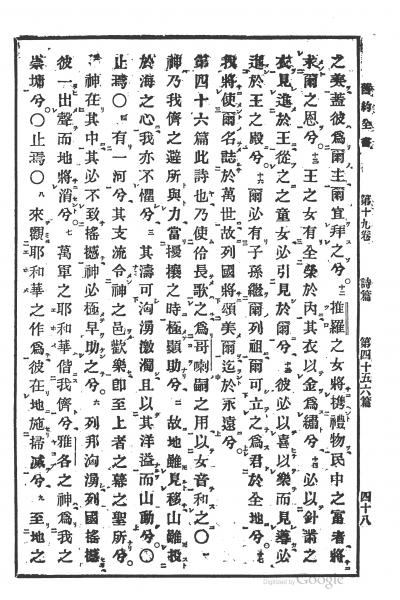 舊約全書　第十九卷　詩篇　第四十五六篇　四十八
之美蓋彼爲爾主爾宜拜之兮。十二推羅之女將攜禮物民中之富者將
求爾之恩兮。十三王之女有全榮於內其衣以金爲繡兮。十四必以針黹之
衣見進於王從之之童女必引見於爾兮。十五彼必以喜以樂而見導必
進於王之殿兮。十六爾必有子孫繼爾列祖爾可立之爲君於全地兮。十七
我將使爾名誌於萬世故列國將頌美爾迄於永遠兮。
第四十六篇此詩也乃使伶長歌之爲哥喇嗣之用以女音和之〇一
神乃我儕之避所與力當擾攘之時極顯助兮。二故地雖見移山雖投
於海之心我亦不懼兮。三其濤可洶湧激濁且以其洋溢而山動兮。〇
止焉〇四有一河兮其支流令神之邑歡樂卽至上者之幕之聖所兮。五
神在其中其必不致搖撼神必極早助之兮。六列邦洶湧列國搖撼
彼一出聲而地將消兮。七萬軍之耶和華偕我儕兮雅各之神爲我之
崇墉兮。〇止焉〇八來觀耶和華之作爲彼在地施掃滅兮。九至地之
Digitized by Google